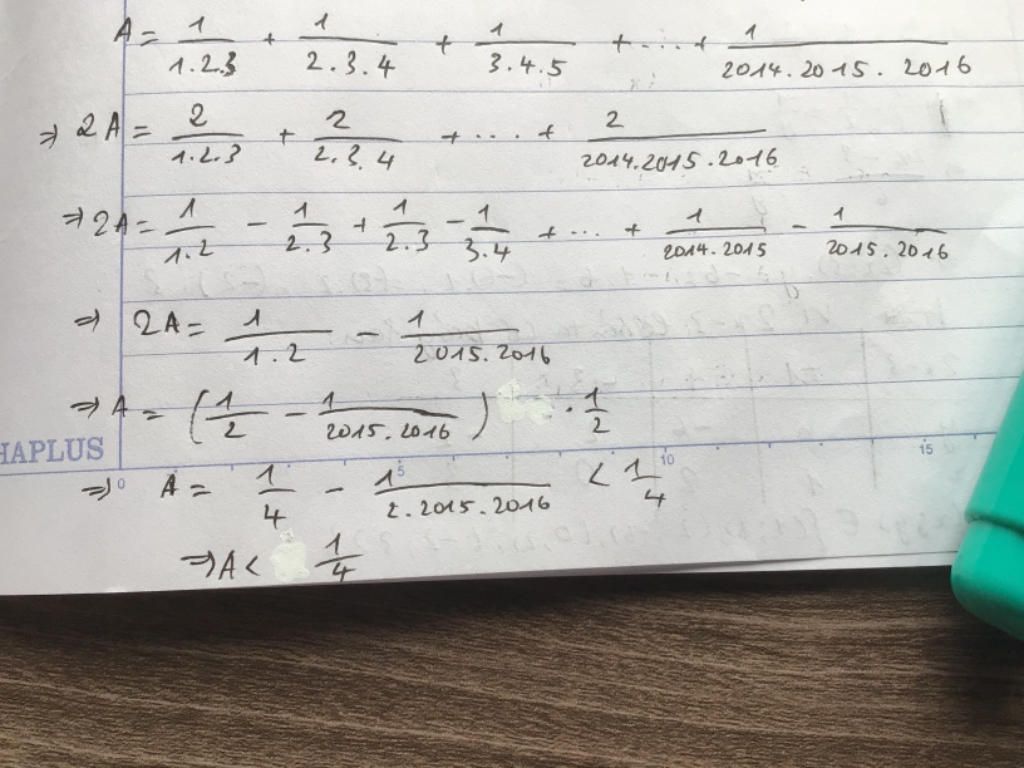 A = 1/1.2.3 + 1/2.3.4 + 1/3.4.5 + .... + 1/2014.2015.2016
⇒ 2A = 2/1.2.3 + 2/2.3.4 + .... + 2/2014.2015.2016
⇒ 2A = 1/1.2 - 1/2.3 + 1/2.3 - 1/3.4 + ... + 1/2014.2015 - 1/2015.2016
⇒ 2A = 1/1.2 - 1/2015.2016
⇒ A = (1/2 - 1/2015.2016) . 1/2
HAPLUS
0 5 10 15
⇒ A = 1/4 - 1/2.2015.2016 < 1/4
⇒ A < 1/4